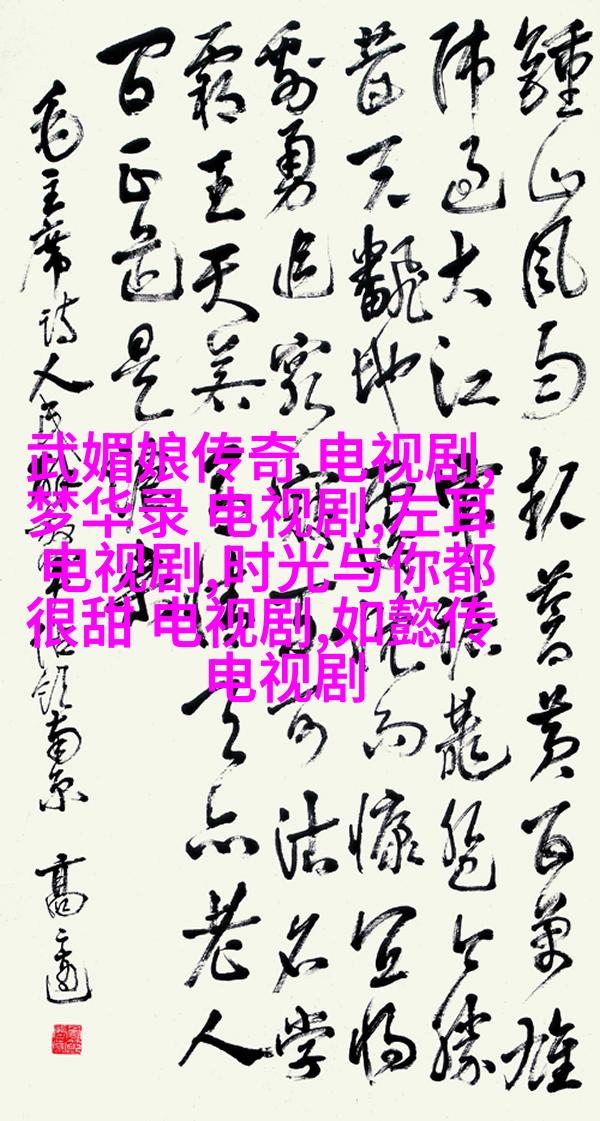 鍾山风雨起蒼黄百万雄
师过大江虎踞龍盘今胜
昔天翻地覆慨而慷宜将
剩勇追穷寇不可沽名学
霸王天若有情天亦老人
间正道是沧桑
毛主席诗人民解放军占领南京 高
武媚娘传奇 电视剧,
梦华录 电视剧,左耳
电视剧,时光与你都
很甜 电视剧,如懿传
电视剧